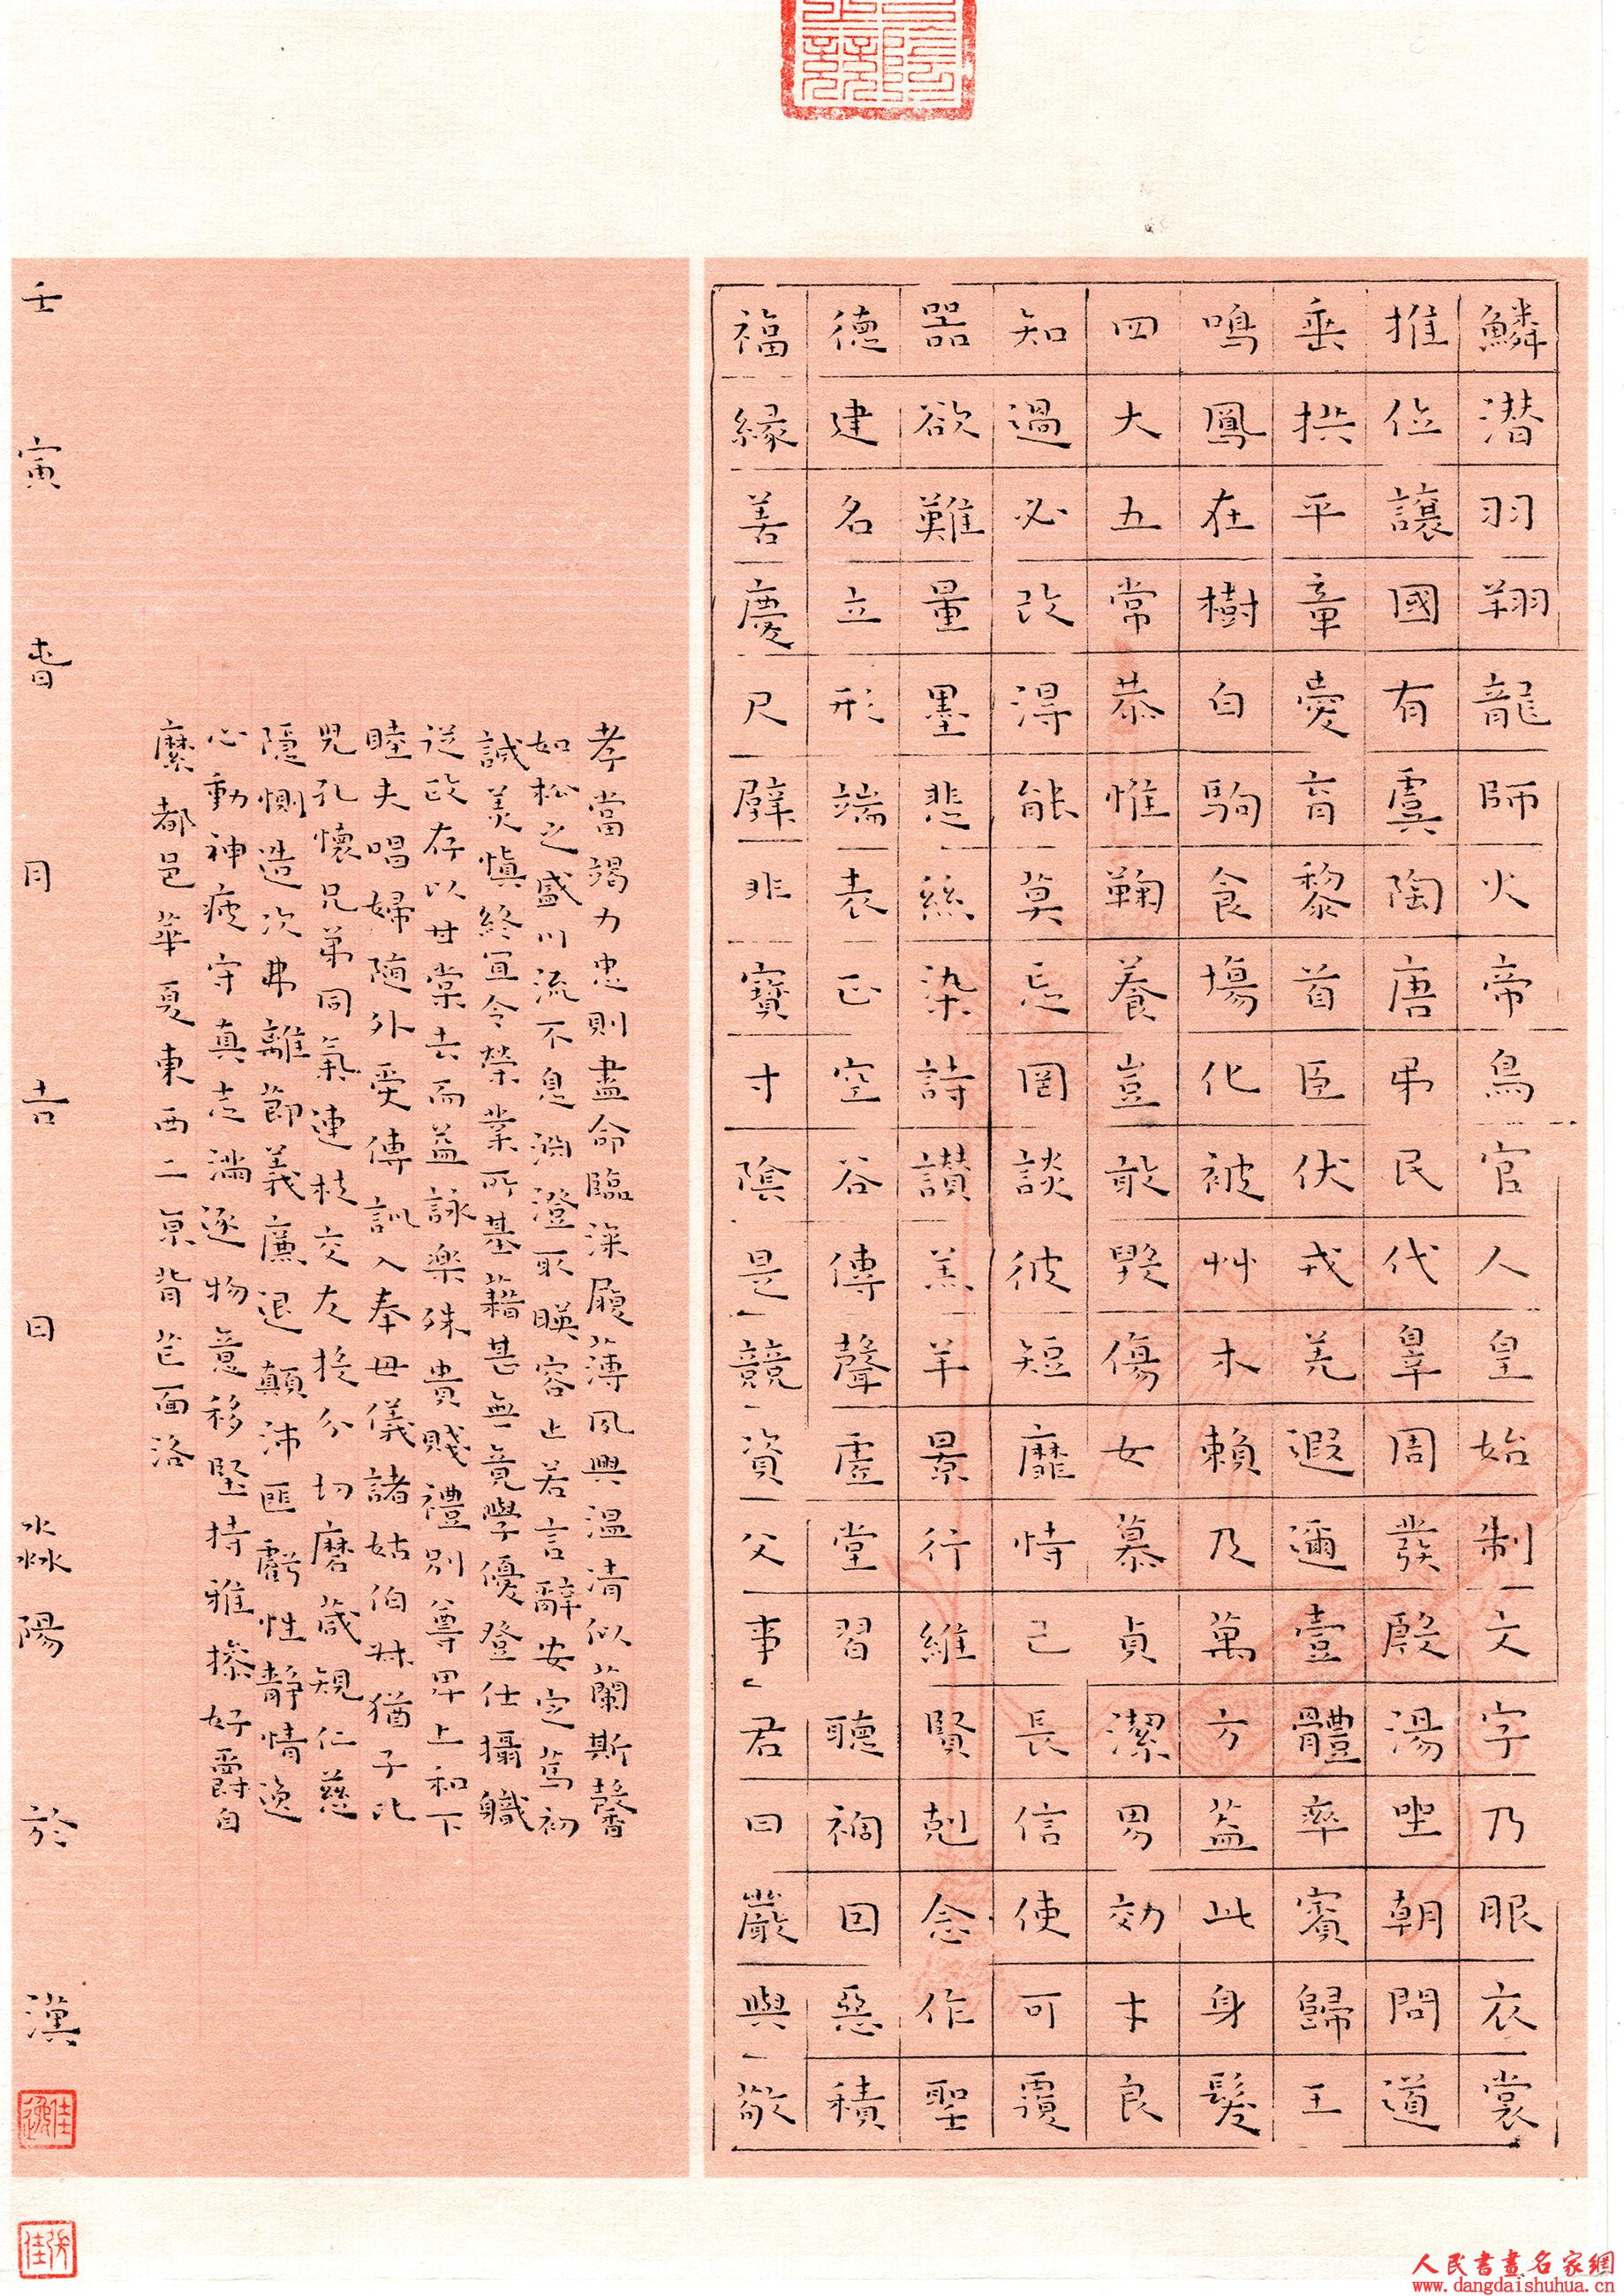 鱗潛羽翔龍師火帝鳥官人皇始制文字乃服衣裳
推位讓國有虞陶唐弔民伐辠周發殷湯坐朝問道
垂拱平章愛育黎首臣伏戎羌遐邇壹體率賓歸王
鳴鳳在樹白駒食場化被艸木賴及萬方蓋此身髮
四大五常恭惟鞠養豈敢毀傷女慕貞潔男効才良
知過必改得能莫忘罔談彼短靡恃己長信使可覆
器欲難量墨悲絲染詩讃羔羊景行維賢剋念作聖
德建名立形端表正空谷傳聲虛堂習聽禍因惡積
福緣善慶尺璧非寶寸陰是競資父事君曰嚴與敬
孝當竭力忠則盡命臨深履薄夙興溫清似蘭斯馨
如松之盛川流不息淵澄取暎容止若言辭安定篤初
誠美慎終宜令榮業所基藉甚無竟學優登仕攝職
從政存以甘棠去而益詠樂殊貴賤禮別尊卑上和下
睦夫唱婦隨外受傅訓入奉母儀諸姑伯叔猶子比
兒孔懷兄弟同氣連枝交友投分切磨箴規仁慈
隱惻造次弗離節義廉退顛沛匪虧性靜情逸
心動神疲守真志滿逐物意移堅持雅操好爵自
縻都邑華夏東西二京背芒面洛
壬寅春月吉日淼陽於漢
人民書畫名家網
www.dangdaishuhua.cn